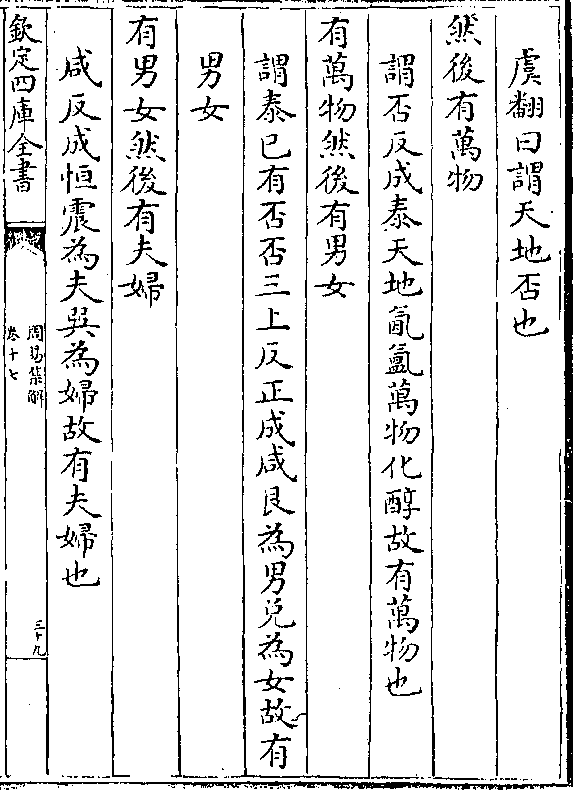 虞翻曰謂天地否也
然後有萬物
謂否反成泰天地氤氳萬物化醇故有萬物也
有萬物然後有男女
謂泰已有否否三上反正成咸艮為男兌為女故有
男女
有男女然後有夫婦
咸反成恒震為夫巽為婦故有夫婦也
欽定四庫全書
周易集解
卷十七
三十九